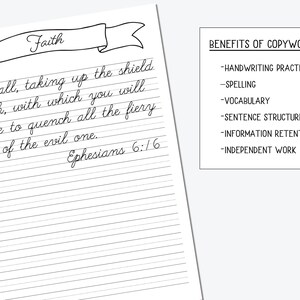 Faith
all, taking up the shield
, with which you will
e to quench all the fiery
of the evil one.
Ephesians 6:16
BENEFITS OF COPYWO
-HANDWRITING PRACTI
-SPELLING
-VOCABULARY
-SENTENCE STRUCTURE
-INFORMATION RETENT
-INDEPENDENT WORK